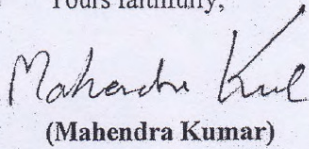 Yours faithfully,
Mahendra Kumar
(Mahendra Kumar)